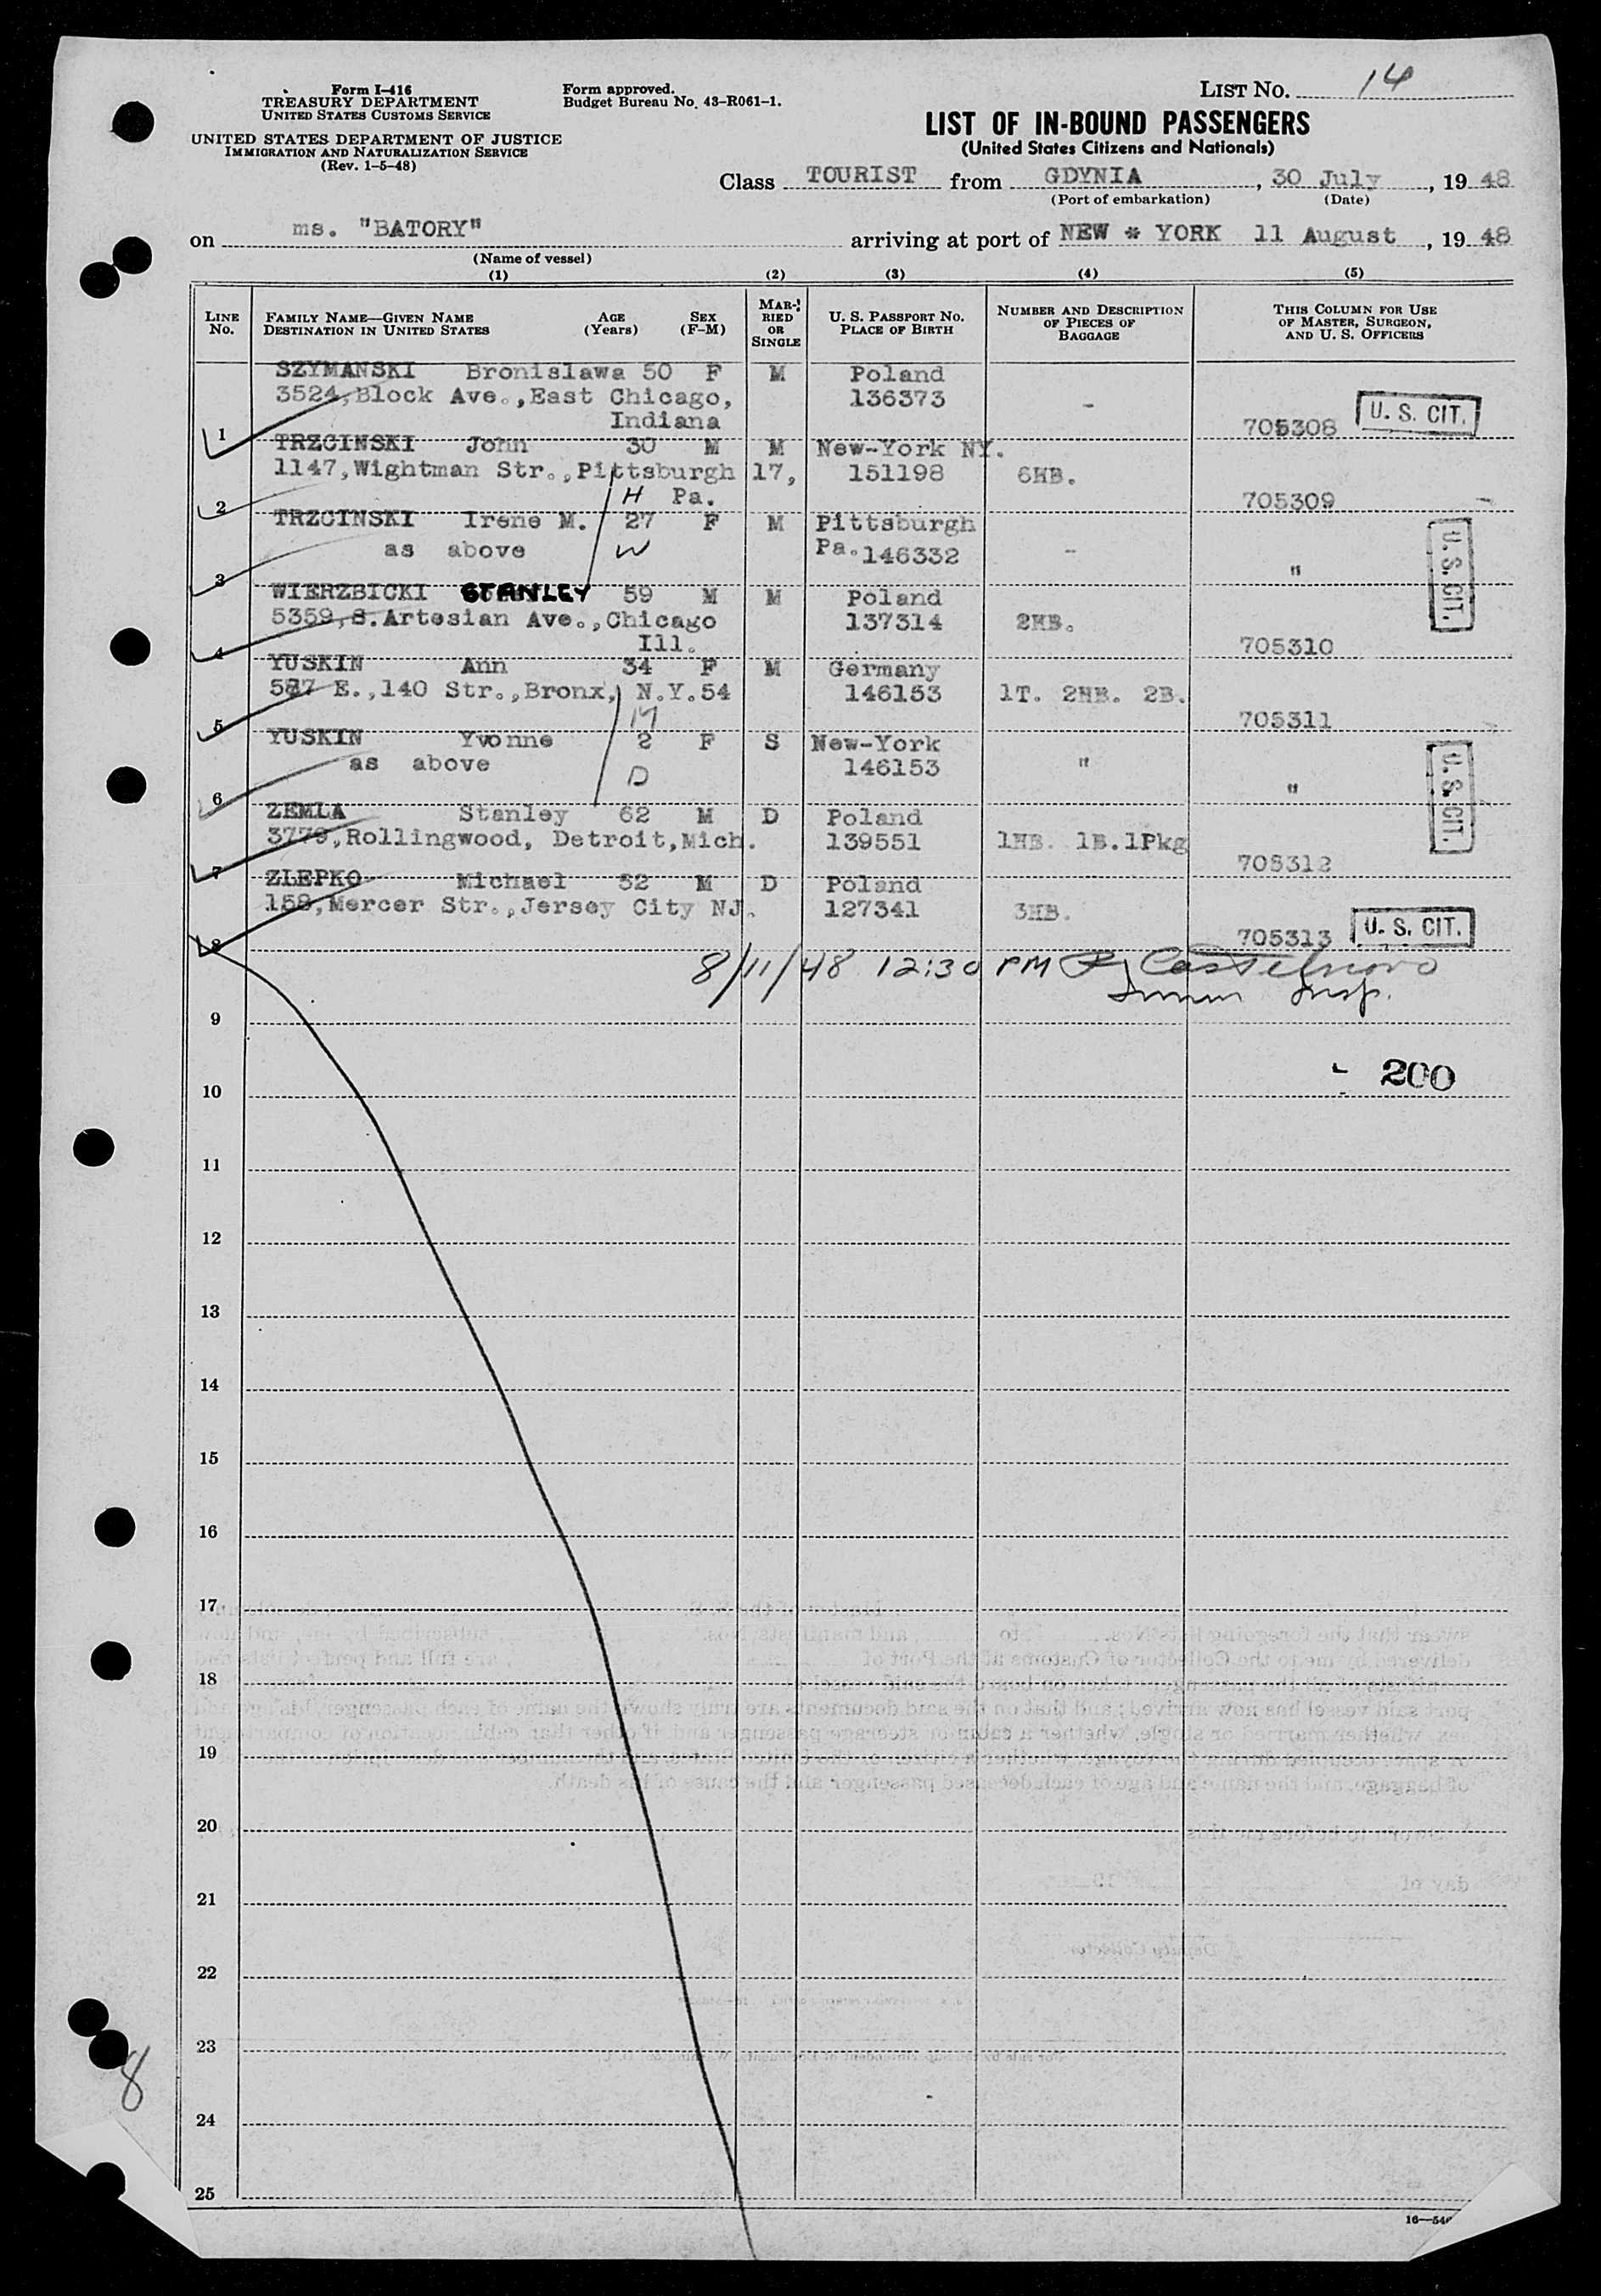 Form I-416
TREASURY DEPARTMENT
UNITED STATES CUSTOMS SERVICE
UNITED STATES DEPARTMENT OF JUSTICE
IMMIGRATION AND NATURALIZATION SERVICE
(Rev. 1-5-48)
Form approved.
Budget Bureau No. 43-R061-1.
LIST NO. 14
LIST OF IN-BOUND PASSENGERS
(United States Citizens and Nationals)
Class TOURIST from GDYNIA, 30 July, 19 48
(Port of embarkation) (Date)
on ms. "BATORY" arriving at port of NEW * YORK 11 August, 19 48
(Name of vessel)
(1) (2) (3) (4) (5)
LINE No. FAMILY NAME—GIVEN NAME DESTINATION IN UNITED STATES AGE (Years) SEX (F-M) MARRIED OR SINGLE U. S. PASSPORT NO. PLACE OF BIRTH NUMBER AND DESCRIPTION OF PIECES OF BAGGAGE THIS COLUMN FOR USE OF MASTER, SURGEON, AND U. S. OFFICERS
SZYMANSKI Bronislawa 50 F M Poland
3524, Block Ave., East Chicago, 136373 -
1 Indiana 705308 U. S. CIT.
TRZCINSKI John 30 M M New-York NY.
1147, Wightman Str., Pittsburgh 17, 151198 6HB.
2 H Pa. 705309
TRZCINSKI Irene M. 27 F M Pittsburgh
as above W Pa. 146332 -
3 " U. S. CIT.
WIERZBICKI STANLEY 59 M M Poland
5359, S. Artesian Ave., Chicago 137314 2HB.
4 Ill. 705310
YUSKIN Ann 34 F M Germany
587 E., 140 Str., Bronx, N.Y. 54 146153 1T. 2HB. 2B.
5 705311
YUSKIN Yvonne 2 F S New-York
as above D 146153 "
6 " U. S. CIT.
ZEMLA Stanley 62 M D Poland
3779, Rollingwood, Detroit, Mich. 139551 1HB. 1B. 1Pkg
7 705312
ZLEPKO Michael 52 M D Poland
158, Mercer Str., Jersey City NJ. 127341 3HB.
8 705313 U. S. CIT.
8/11/48 12:30 PM Castelnovo
Immn Insp.
9
200
10
11
12
13
14
15
16
17
18
19
20
21
22
23
24
25
8